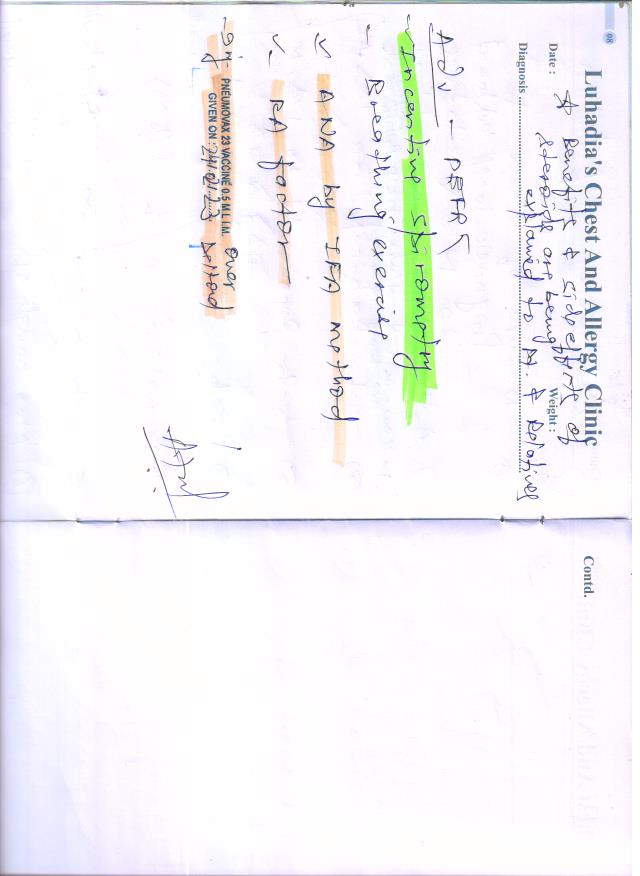 08
Luhadia's Chest And Allergy Clinic
Date : Weight :
* Benefits & side effects of
steroids are being
explained to pt. & Relatives
Diagnosis
Adv - PEFR
- Incentive spirometry
- Breathing exercise
✓ ANA by IFA method
✓ RA factor
- Inj- PNEUMOVAX 23 VACCINE 0.5 ML I.M. over
GIVEN ON : 24/01/23 Deltoid
Contd.